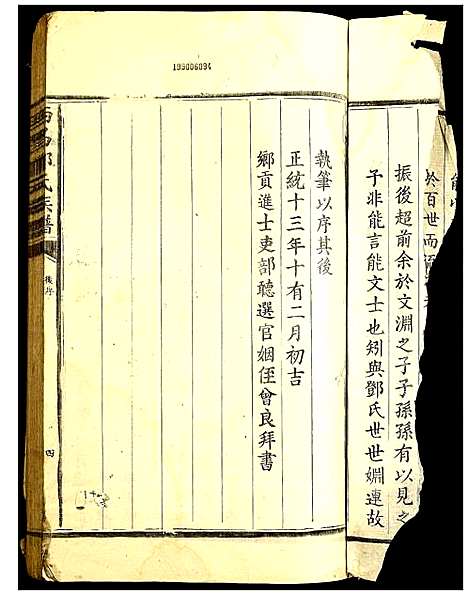 於百世而
振後超前余於文淵之子子孫孫有以見之
子非能言能文士也矧與鄧氏世世婣連故
執筆以序其後
正統十三年十有二月初吉
鄉貢進士吏部聽選官姻侄曾良拜書
西昌鄧氏族譜
後序
四